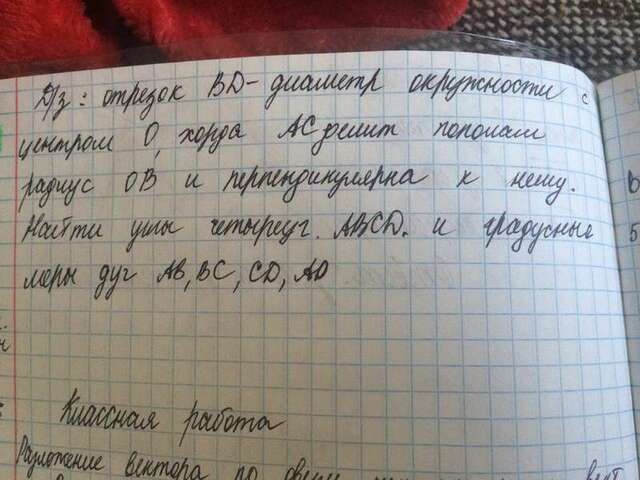 Д/з: отрезок BD - диаметр окружности с
центром O, хорда AC делит пополам
радиус OB и перпендикулярна к нему.
Найти углы четыреуг. ABCD. и градусные
меры дуг AB, BC, CD, AD
Классная работа
Разложение вектора по двум